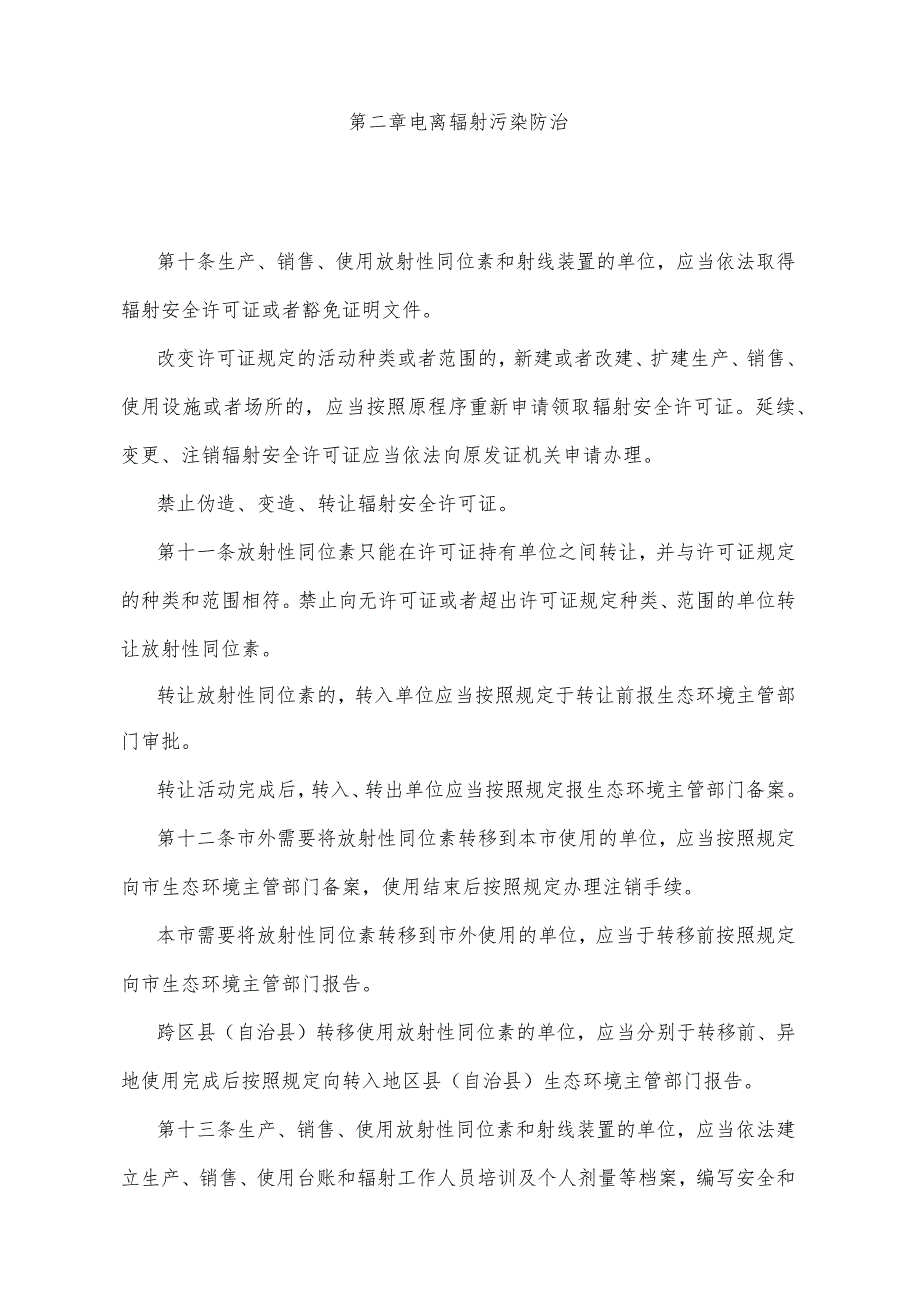 第二章电离辐射污染防治
第十条生产、销售、使用放射性同位素和射线装置的单位，应当依法取得
辐射安全许可证或者豁免证明文件。
改变许可证规定的活动种类或者范围的，新建或者改建、扩建生产、销售、
使用设施或者场所的，应当按照原程序重新申请领取辐射安全许可证。延续、
变更、注销辐射安全许可证应当依法向原发证机关申请办理。
禁止伪造、变造、转让辐射安全许可证。
第十一条放射性同位素只能在许可证持有单位之间转让，并与许可证规定
的种类和范围相符。禁止向无许可证或者超出许可证规定种类、范围的单位转
让放射性同位素。
转让放射性同位素的，转入单位应当按照规定于转让前报生态环境主管部
门审批。
转让活动完成后，转入、转出单位应当按照规定报生态环境主管部门备案。
第十二条市外需要将放射性同位素转移到本市使用的单位，应当按照规定
向市生态环境主管部门备案，使用结束后按照规定办理注销手续。
本市需要将放射性同位素转移到市外使用的单位，应当于转移前按照规定
向市生态环境主管部门报告。
跨区县（自治县）转移使用放射性同位素的单位，应当分别于转移前、异
地使用完成后按照规定向转入地区县（自治县）生态环境主管部门报告。
第十三条生产、销售、使用放射性同位素和射线装置的单位，应当依法建
立生产、销售、使用台账和辐射工作人员培训及个人剂量等档案，编写安全和